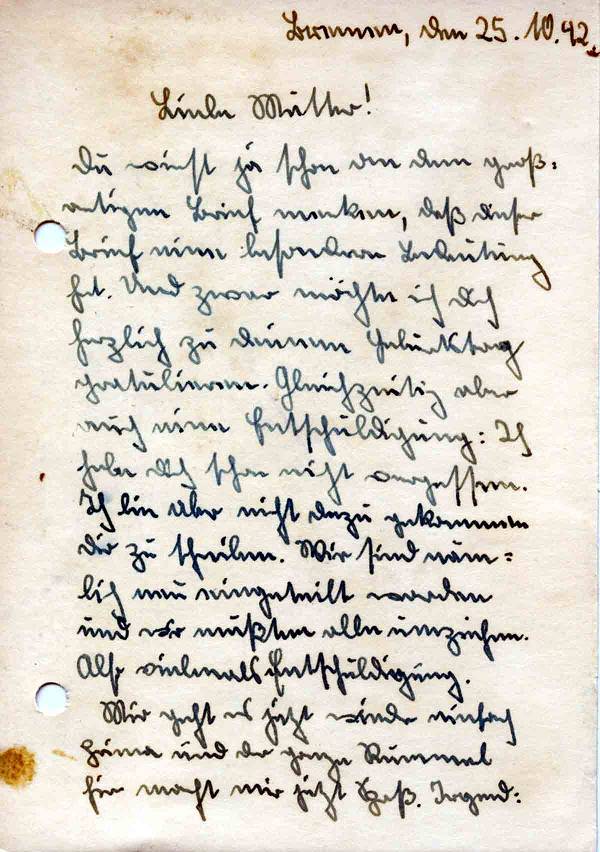 Bremen, den 25.10.42.
Liebe Mutter!
Du wirst ja schon an dem groß-
artigen Brief merken, daß dieser
Brief eine besondere Bedeutung
hat. Und zwar möchte ich Dich
herzlich zu deinem Geburtstag
gratulieren. Gleichzeitig aber
auch eine Entschuldigung: Ich
habe Dich schon nicht vergessen.
Ich bin aber nicht dazu gekommen
dir zu schreiben. Wir sind näm-
lich neu eingeteilt worden
und wir mußten alle umziehen.
Also vielmals Entschuldigung.
Mir geht es jetzt wieder einfach
prima und der ganze Rummel
hier macht mir jetzt Spaß. Irgend-